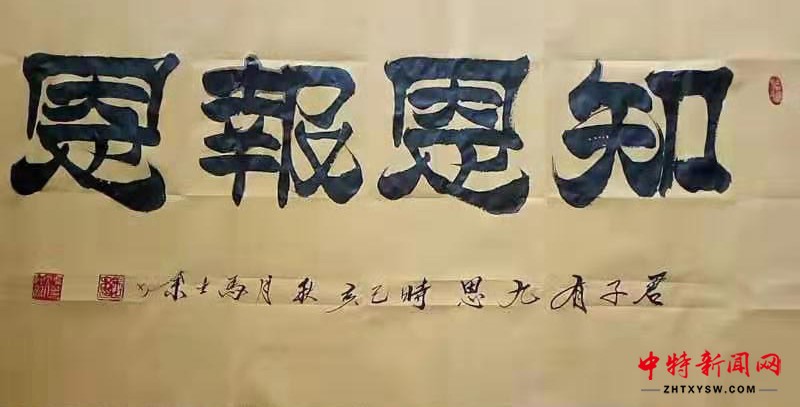 知恩報恩
君子有九思時己亥秋月馬士
中特新闻网
ZHTXYSW.COM